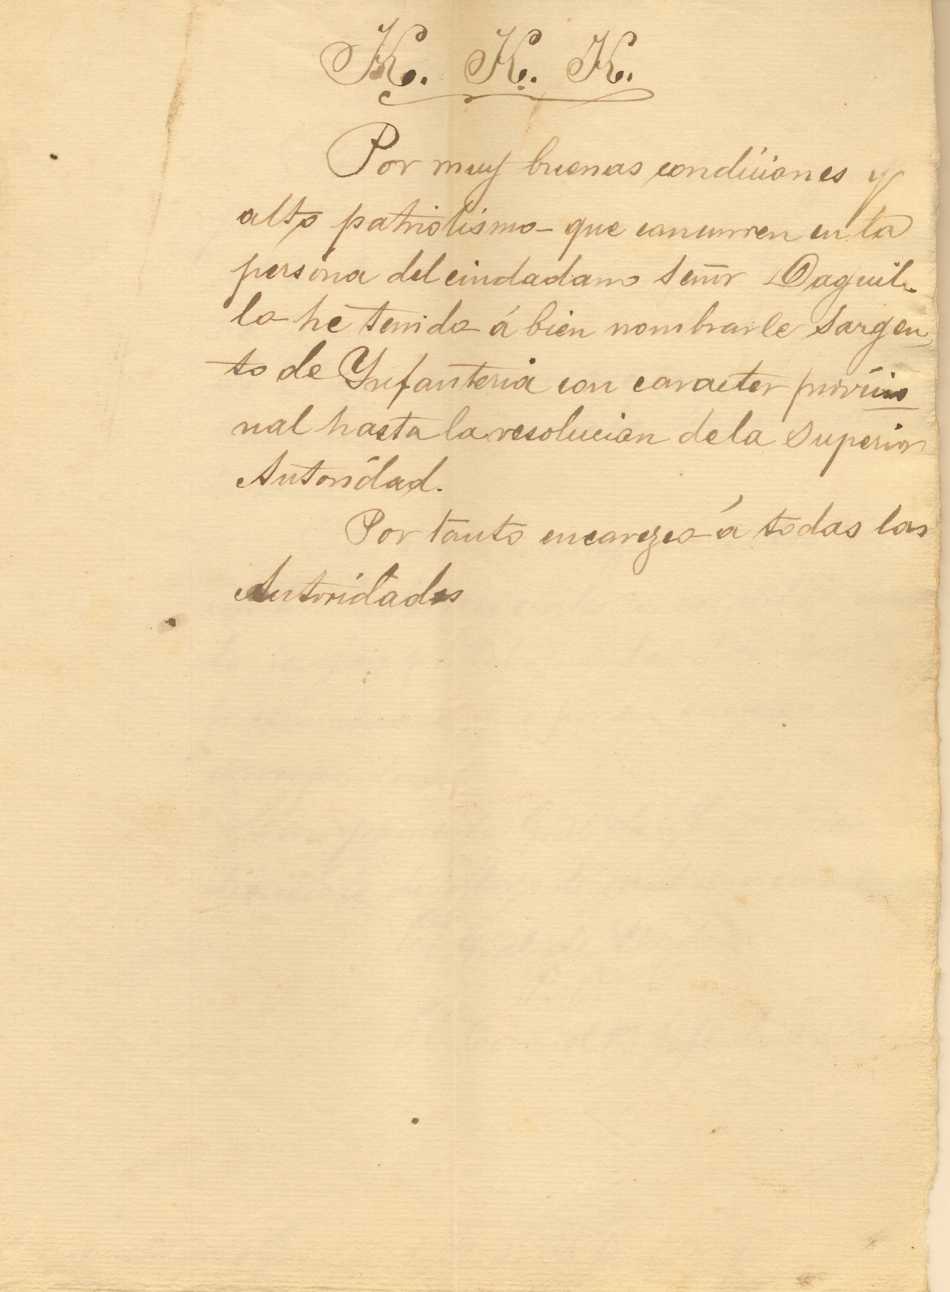 K. K. K.
Por muy buenas condiciones y
alto patriotismo que concurren en la
persona del ciudadano señor Daguil-
lo he tenido á bien nombrarle Sargen-
to de Ynfanteria con caracter provicio
nal hasta la resolucion de la Superior
Autoridad.
Por tanto encarezco á todas las
Autoridades